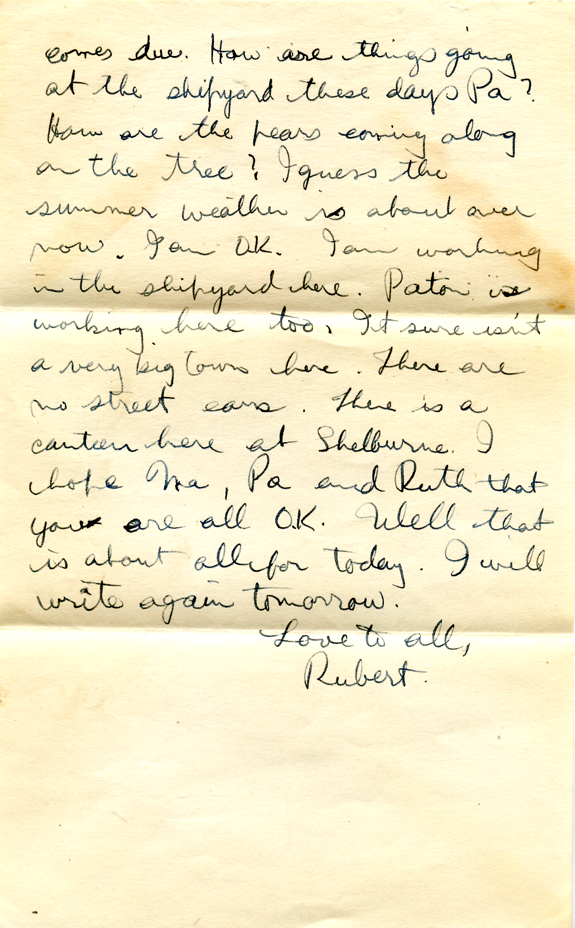 comes due. How are things going
at the shipyard these days Pa?
How are the pears coming along
on the tree? I guess the
summer weather is about over
now. I am O.K. I am working
in the shipyard here. Paton is
working here too. It sure isn't
a very big town here. There are
no street cars. There is a
canteen here at Shelburne. I
hope Ma, Pa and Ruth that
you are all O.K. Well that
is about all for today. I will
write again tomorrow.
Love to all,
Rubert.